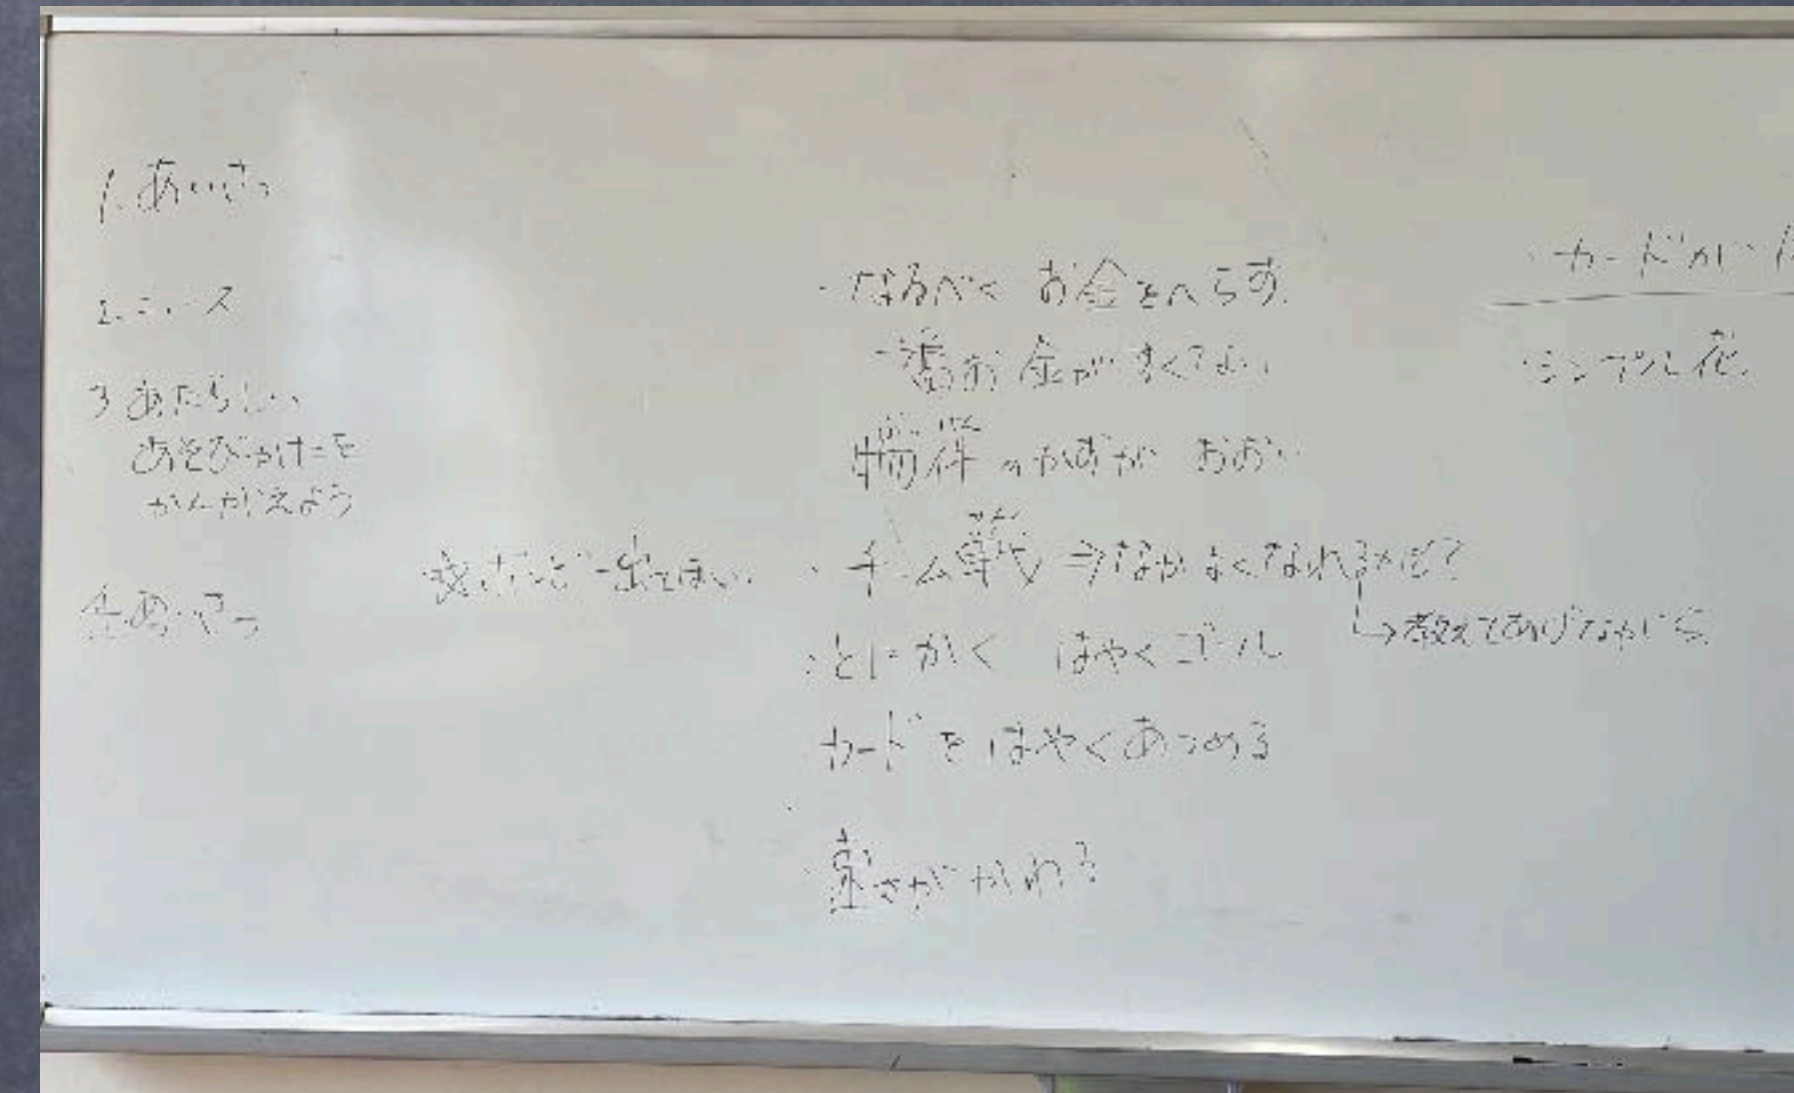 1. あいさつ
2. ニュース
3 あたらしい
あそびかたを
かんがえよう
・なるべく お金をへらす
一番お金がすくない
ぶっけん
物件のかずが おおい
・チーム戦 ⇒なかよくなれるかも?
↳教えてあげながら
・とにかく はやくゴール
カードをはやくあつめる
さがかわる
・カードが
・シンプル化